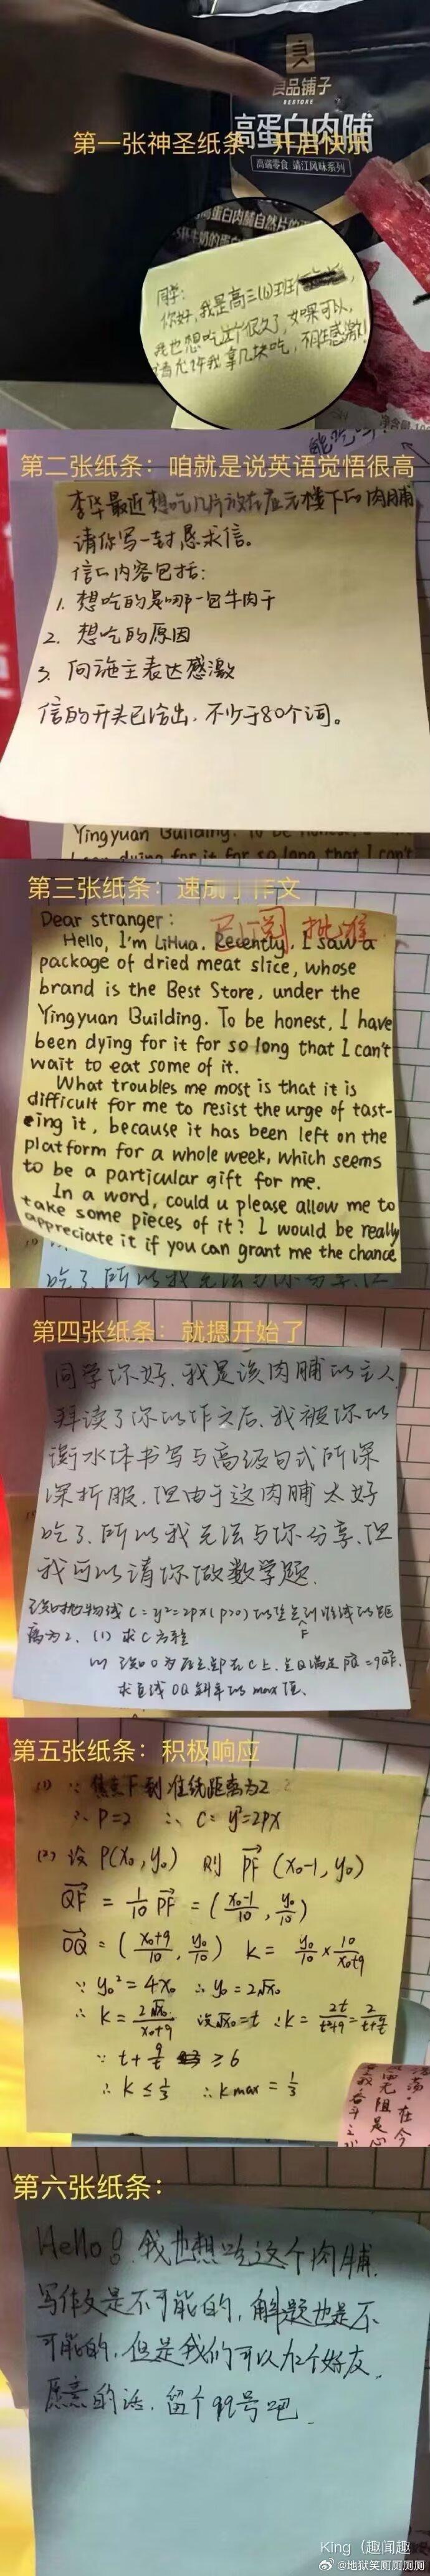 良品铺子
BESTORE
第一张神圣纸条 开启快乐
高蛋白肉脯
高端零食 靖江风味系列
高蛋白肉脯自然片的
同学:
你好,我是高三(6)班
我也想吃这个很久了,如果可以,
请允许我拿几块吃,不胜感激!
第二张纸条：咱就是说英语觉悟很高
李华最近想吃几片放在应元楼下的肉脯
请你写一封恳求信。
信的内容包括:
1. 想吃的是哪一包牛肉干
2. 想吃的原因
3. 向施主表达感激
信的开头已给出,不少于80个词。
Yingyuan Building. To be honest
been dying for it for so long that I can't
第三张纸条：速成了作文
已阅 批准
Dear stranger:
Hello, I'm LiHua. Recently, I saw a
package of dried meat slice, whose
brand is the Best Store, under the
Yingyuan Building. To be honest, I have
been dying for it for so long that I can't
wait to eat some of it.
What troubles me most is that it is
difficult for me to resist the urge of tast-
ing it, because it has been left on the
platform for a whole week, which seems
to be a particular gift for me.
In a word, could u please allow me to
take some pieces of it? I would be really
appreciate it if you can grant me the chance
吃了,所以我无法与你分享,但
第四张纸条：就摁开始了
同学你好,我是该肉脯的主人,
拜读了你的作文后,我被你的
衡水体书写与高级句式所深
深折服,但由于这肉脯太好
吃了,所以我无法与你分享,但
我可以请你做数学题.
已知抛物线 C=y²=2px(p>0)的焦点F到准线的距
离为2. (1) 求C方程
(2) 已知O为原点,P在C上,点Q满足PQ=9QF,
求直线OQ斜率的max值.
第五张纸条：积极响应
(1) ∵ 焦点F到准线距离为2
∴ P=2 ∴ C: y²=2px
(2) 设 P(x₀,y₀) 则 PF (x₀-1, y₀)
QF = 1/10 PF = (x₀-1/10, y₀/10)
OQ = (x₀+9/10, y₀/10) K = y₀/10 × 10/x₀+9
∵ y₀²=4x₀ ∴ y₀=2√x₀
∴ K = 2√x₀/x₀+9 设√x₀=t ∴ K = 2t/t²+9 = 2/t+9/t
∵ t+9/t ≥6
∴ K ≤ 1/3 ∴ Kmax = 1/3
第六张纸条：
Hello! 我也想吃这个肉脯,
写作文是不可能的,解题也是不
可能的,但是我们可以加个好友,
愿意的话,留个QQ号吧.
King（趣闻趣
@地狱笑厕厕厕厕